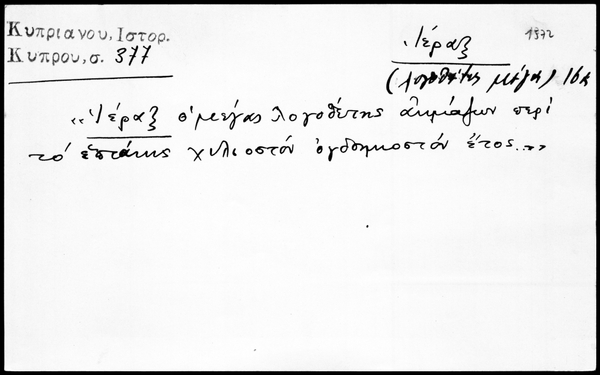 Κυπριανου, Ιστορ.
Κυπρου, σ. 377
Ἱέραξ
1972
(λογοθέτης μέγας) 16α
«Ἱέραξ ὁ μέγας λογοθέτης ἀκμάζων περὶ
τὸ ἑπτάκις χιλιοστὸν ὀγδηκοστὸν ἔτος...»